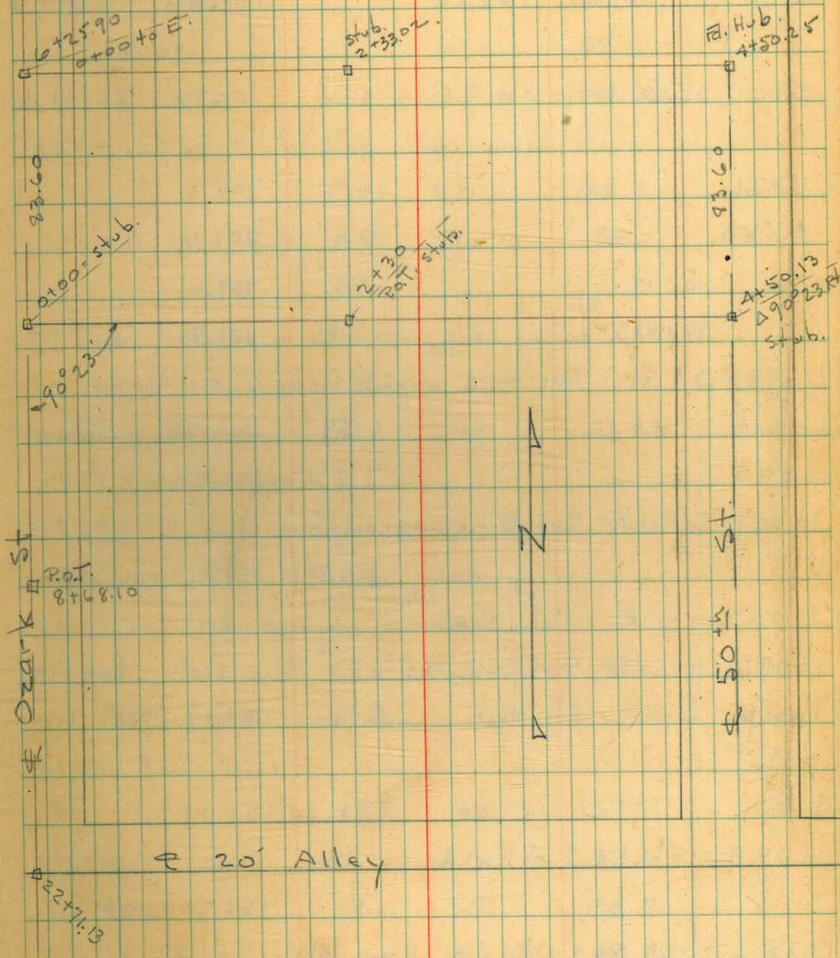 6+25.90
0+00 to E.
stub.
2+33.02
Fd. Hub.
4+50.25
83.60
83.60
0+00 = stub.
2+30
P.O.T. stub.
4+50.13
Δ 90°23' Rt
stub.
90° 23'
N
P.O.T.
8+68.10
℄ Ozark St
℄ 50th St.
℄ 20' Alley
22+71.13